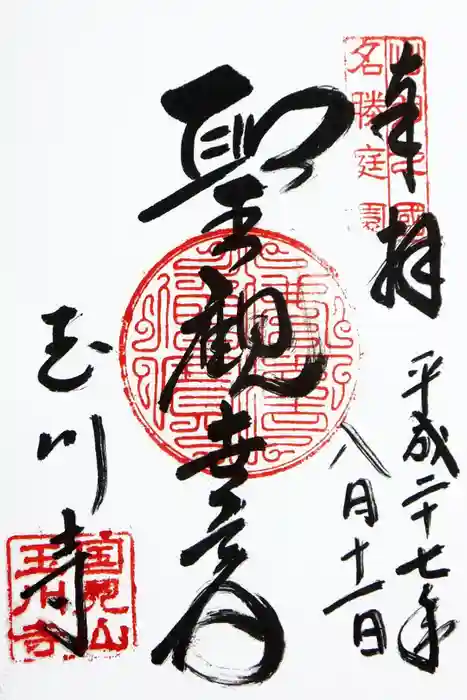 奉拝
名勝庭園
平成二十七年
八月十一日
聖觀世音
玉川寺
國見山
玉川寺